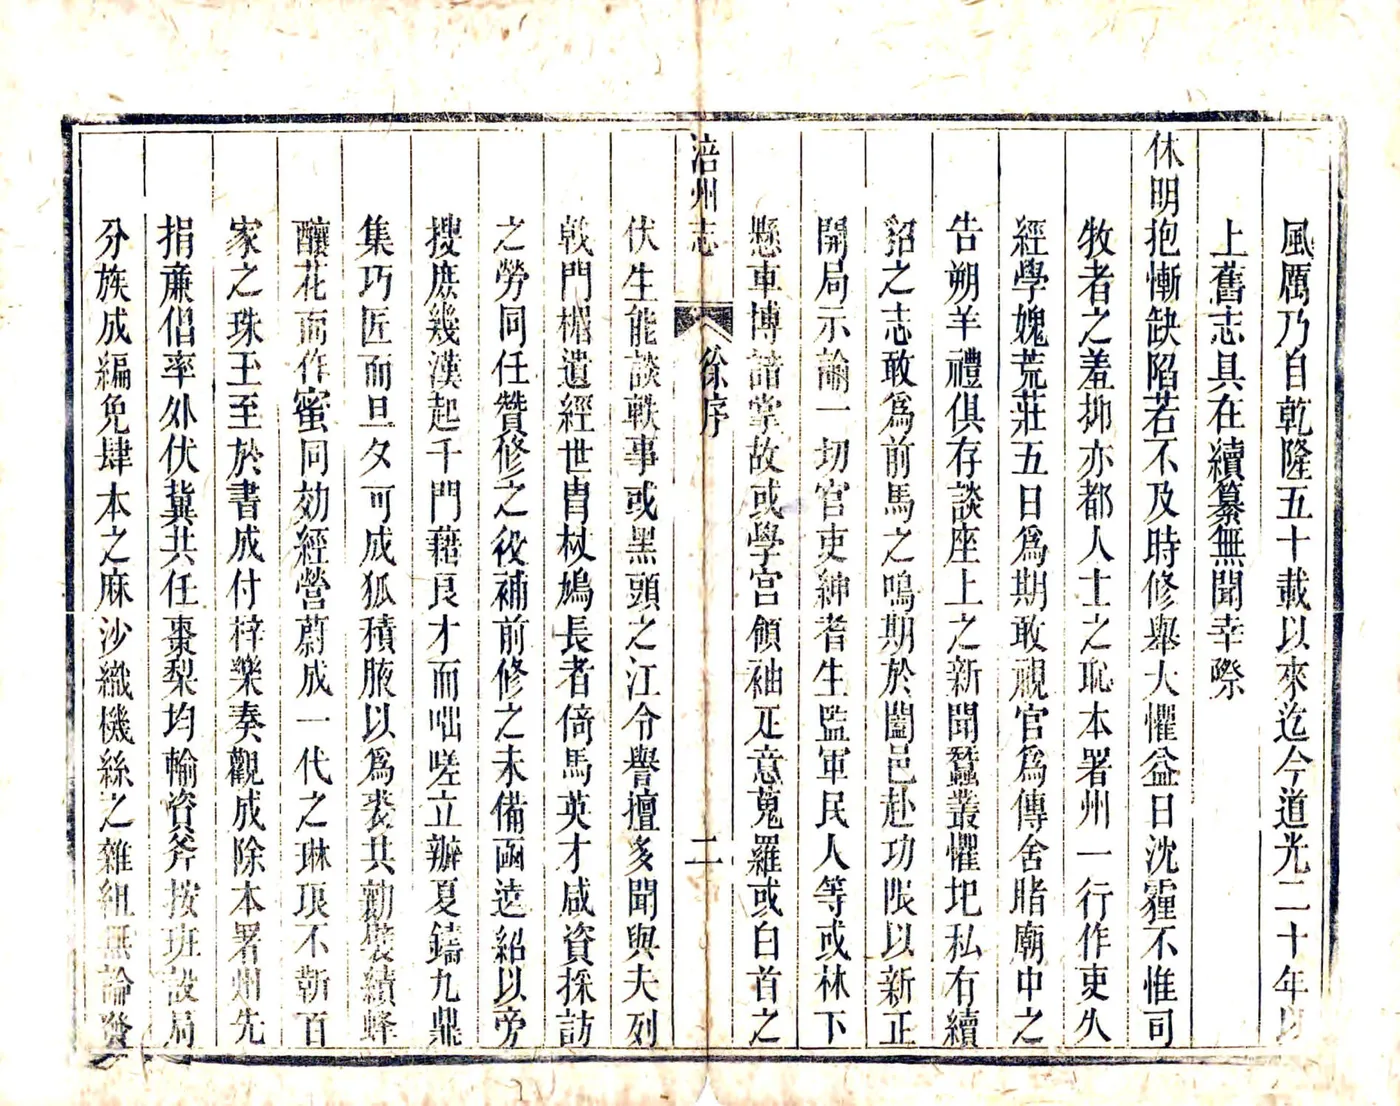 風厲乃自乾隆五十載以來迄今道光二十年以
上舊志具在續纂無聞幸際
休明抱慚缺陷若不及時修舉大懼益日沈霾不惟司
牧者之羞抑亦都人士之恥本署州一行作吏久
經學媿荒莊五日爲期敢視官爲傳舍睹廟中之
告朔羊禮俱存談座上之新聞蠶叢懼圯私有續
貂之志敢爲前馬之鳴期於闔邑赴功限以新正
開局示諭一切官吏紳耆生監軍民人等或林下
懸車博諳掌故或學宮領袖疋意蒐羅或白首之
涪州志
徐序
二
伏生能談軼事或黑頭之江令譽擅多聞與夫列
戟門楣遺經世胄杖鳩長者倚馬英才咸資採訪
之勞同任贊修之役補前修之未備函遠紹以旁
搜庶幾漢起千門藉良才而咄嗟立辦夏鑄九鼎
集巧匠而旦夕可成狐積腋以爲裘共勷裝績蜂
釀花而作蜜同効經營蔚成一代之琳琅不靳百
家之珠玉至於書成付梓樂奏觀成除本署州先
捐廉倡率外伏冀共任棗梨均輸資斧按班設局
分族成編免肆本之麻沙織機絲之雜組無論發